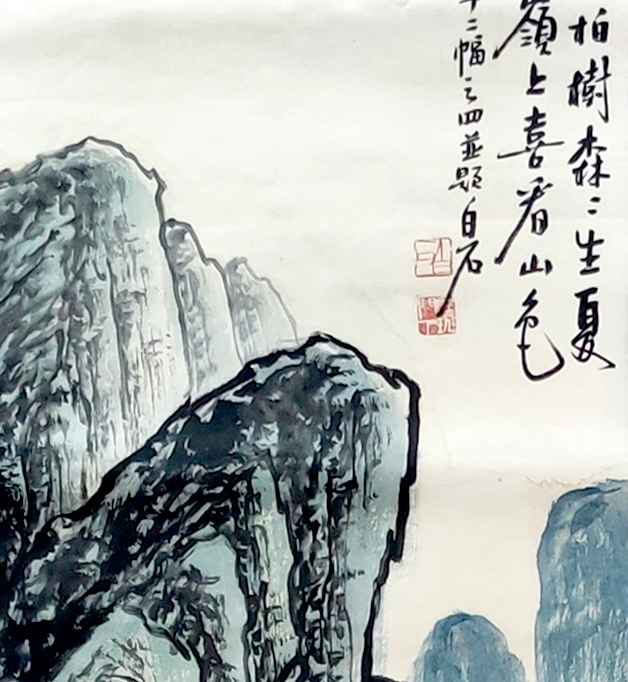 柏樹森〻生夏
嶺上喜看山色
十二幅之四並題白石